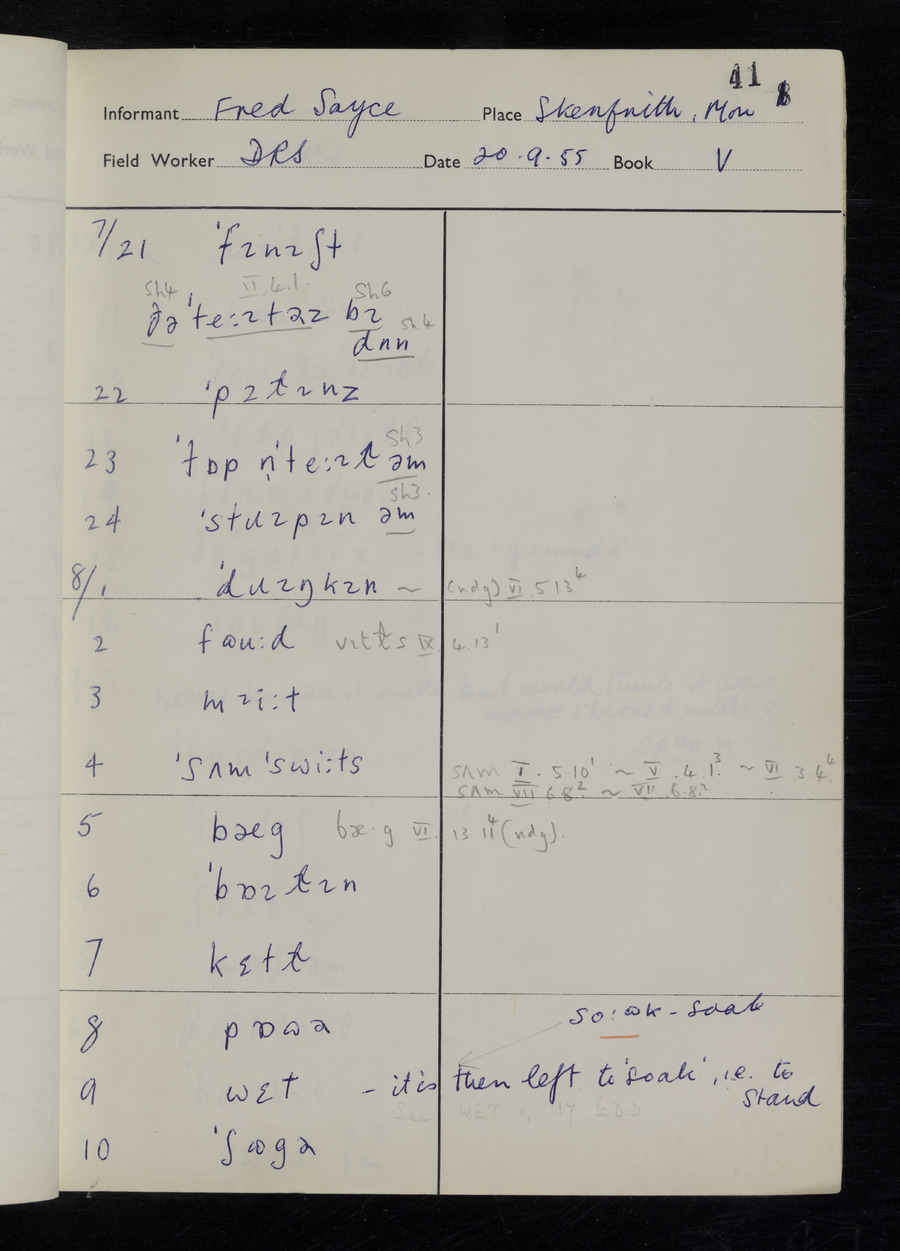 41 8
Informant Fred Sayce Place Skenfrith, Mon
Field Worker DRS Date 20.9.55 Book V
7/21 ˈfɪnɪʃt
Sh4 II.4.1. Sh6
ðə ˈteːɪtəz bɪ Sh4
dʌn
22 ˈpɪɫɪnz
Sh3
23 ˈtɒp n̩ ˈteːɪɫ əm
Sh3.
24 ˈstɹɪpɪn əm
8/1 ˈdɹɪŋkɪn ~ (ndg) VI.5.13⁴
2 fɷuːd vɪtɫs IX 4.13¹
3 mɪiːt
4 ˈsʌm ˈswiːts sʌm I.5.10¹ ~ V.4.1.³ ~ VI.3.4.⁴
sʌm VII 6.8² ~ VII.6.8.²
5 bæg bæ·g VI.13 11⁴ (ndg).
6 ˈbɒɪɫɪn
7 kɛtɫ
soːɷk - soak
8 pɒɷə
9 wɛt - it is then left to 'soak', i.e. to
stand
See WET v, 14 EDD
10 ˈʃɷgə